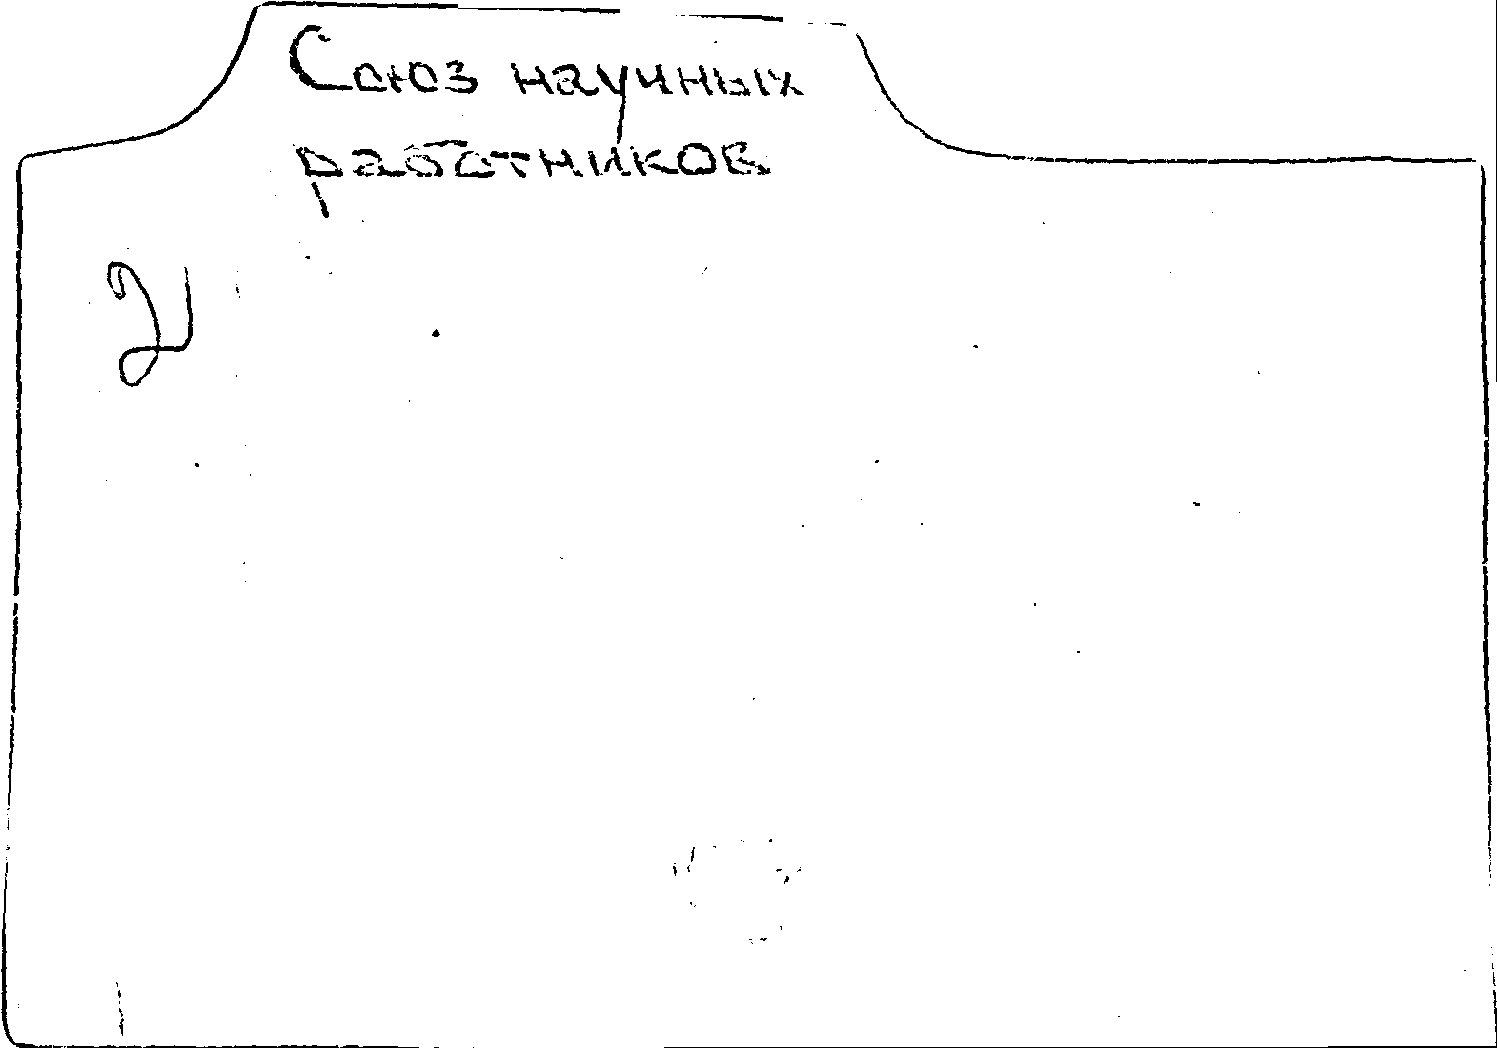 Союз научных
работников
21